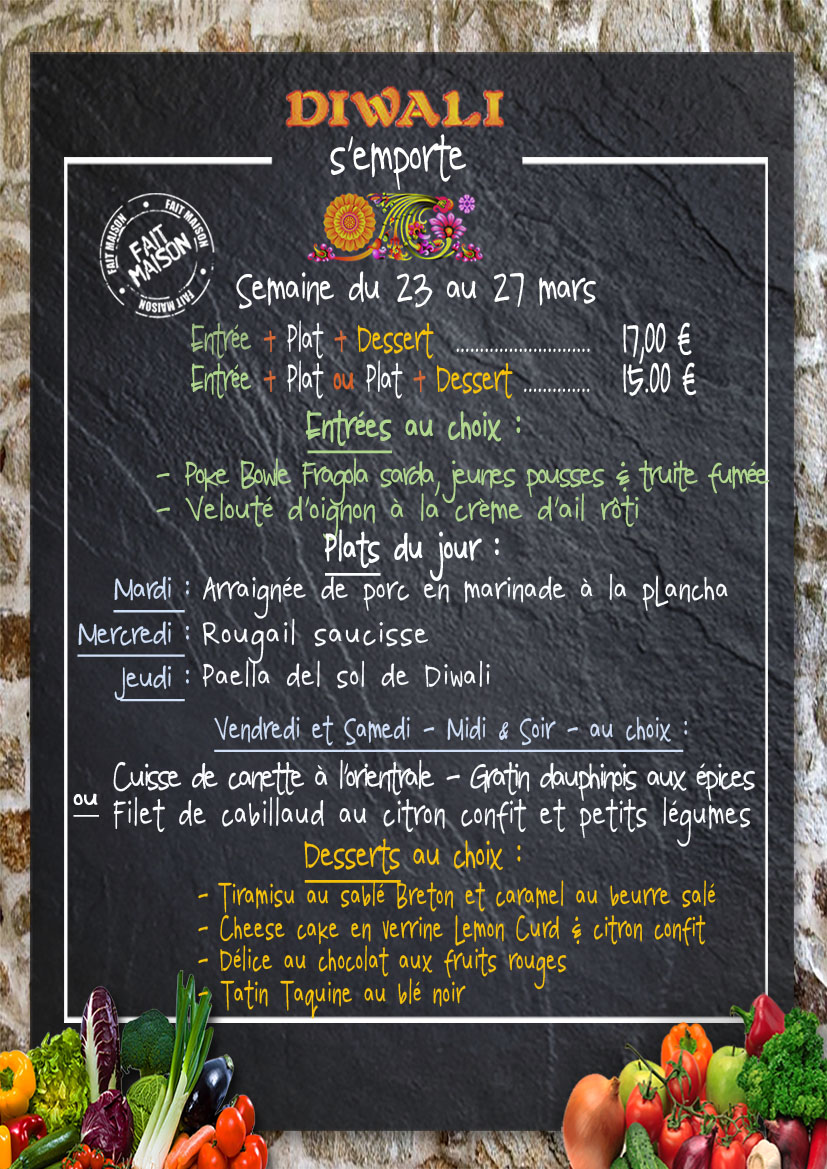 DIWALI
s'emporte
FAIT MAISON
FAIT MAISON
FAIT MAISON
FAIT MAISON
Semaine du 23 au 27 mars
Entrée + Plat + Dessert ............................. 17,00 €
Entrée + Plat ou Plat + Dessert .............. 15.00 €
Entrées au choix :
- Poke Bowle Fragola sarda, jeunes pousses & truite fumée
- Velouté d'oignon à la crème d'ail rôti
Plats du jour :
Mardi : Arraignée de porc en marinade à la pLancha
Mercredi : Rougail saucisse
Jeudi : Paella del sol de Diwali
Vendredi et Samedi - Midi & Soir - au choix :
Cuisse de canette à l'orientrale - Gratin dauphinois aux épices
ou Filet de cabillaud au citron confit et petits légumes
Desserts au choix :
- Tiramisu au sablé Breton et caramel au beurre salé
- Cheese cake en verrine Lemon Curd & citron confit
- Délice au chocolat aux fruits rouges
- Tatin Taquine au blé noir